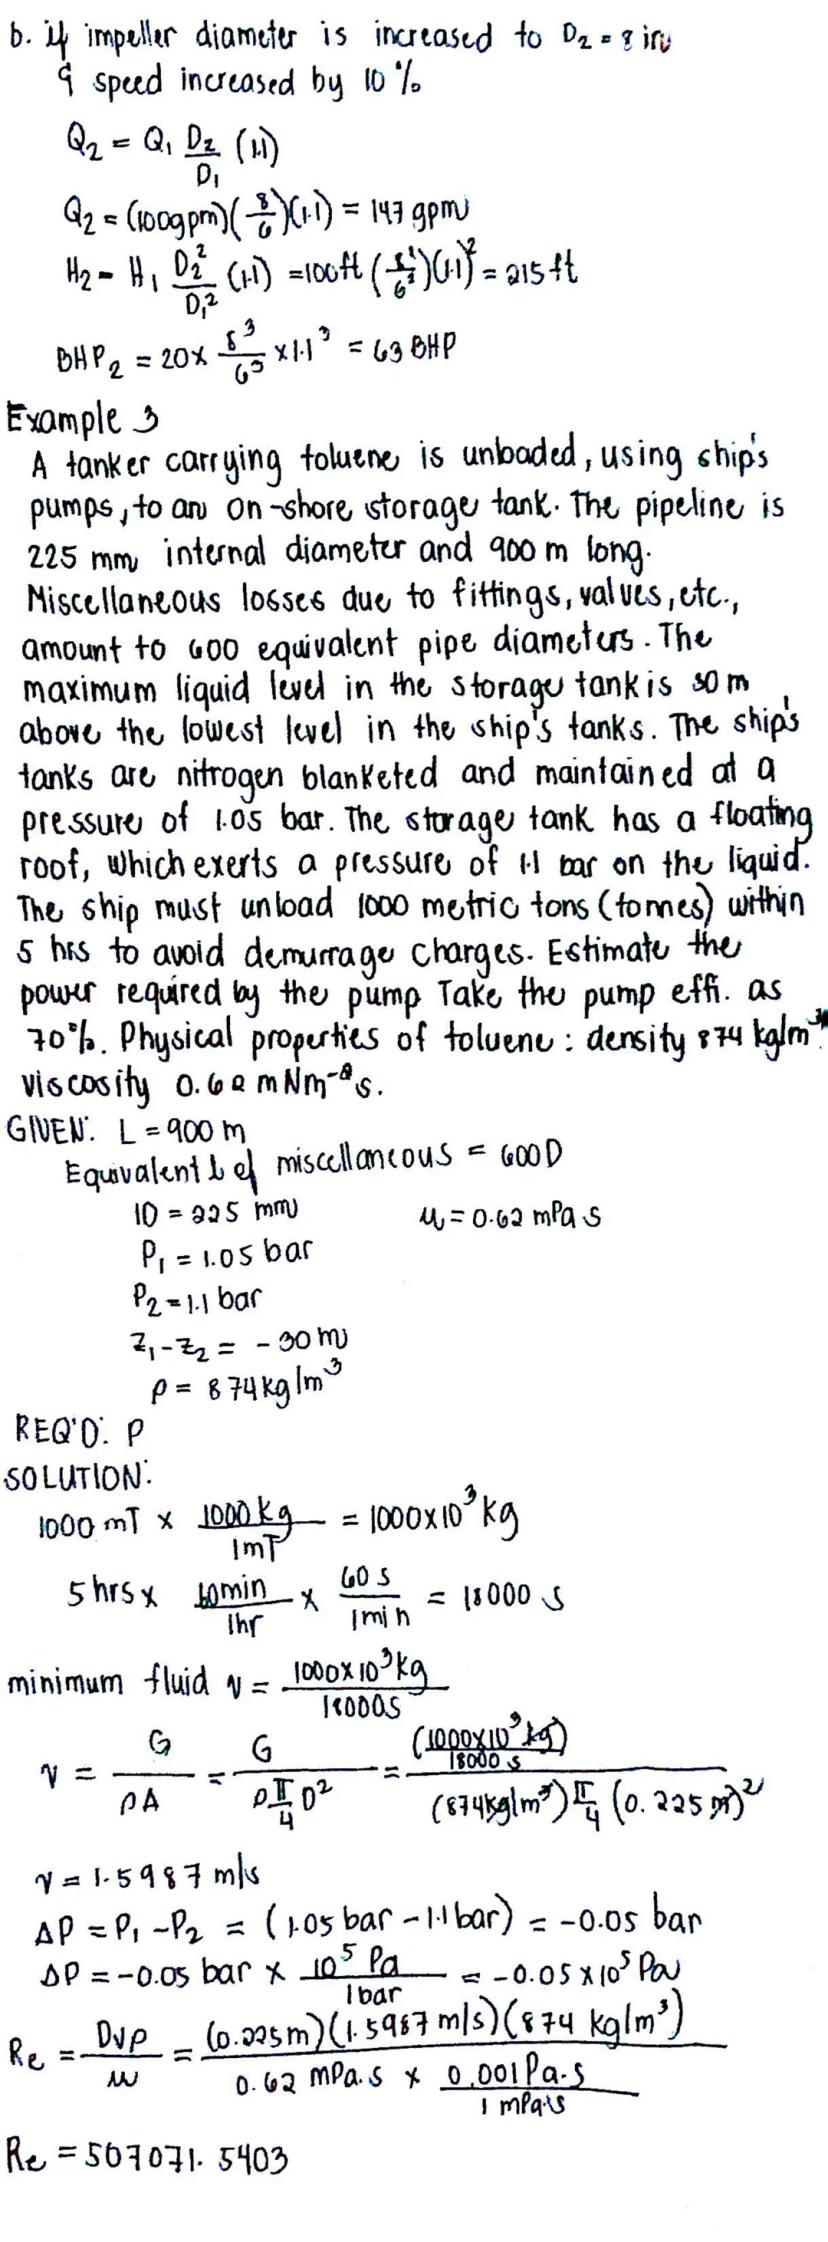 b. if impeller diameter is increased to D₂ = 8 in
& speed increased by 10 %
Q₂ = Q₁ D₂/D₁ (1.1)
Q₂ = (100gpm)(8/6)(1.1) = 147 gpm
H₂ = H₁ D₂²/D₁² (1.1) = 100ft (8²/6²)(1.1)² = 215 ft
BHP₂ = 20 x 8³/6³ x 1.1³ = 63 BHP
Example 3
A tanker carrying toluene is unloaded, using ship's
pumps, to an on-shore storage tank. The pipeline is
225 mm internal diameter and 900 m long.
Miscellaneous losses due to fittings, valves, etc.,
amount to 600 equivalent pipe diameters. The
maximum liquid level in the storage tank is 30 m
above the lowest level in the ship's tanks. The ship's
tanks are nitrogen blanketed and maintained at a
pressure of 1.05 bar. The storage tank has a floating
roof, which exerts a pressure of 1.1 bar on the liquid.
The ship must unload 1000 metric tons (tonnes) within
5 hrs to avoid demurrage charges. Estimate the
power required by the pump Take the pump effi. as
70%. Physical properties of toluene : density 874 kg/m³.
viscosity 0.62 mNm⁻²s.
GIVEN: L = 900 m
Equivalent L of miscellaneous = 600D
ID = 225 mm μ = 0.62 mPa s
P₁ = 1.05 bar
P₂ = 1.1 bar
z₁ - z₂ = - 30 m
ρ = 874 kg/m³
REQ'D: P
SOLUTION:
1000 mT x 1000 kg/1mT = 1000x10³ kg
5 hrs x 60min/1hr x 60 s/1min = 18000 s
minimum fluid v = 1000x10³kg/18000s
v = G/ρA = G/ρ π/4 D² = (1000x10³ kg/18000 s)/(874kg/m³) π/4 (0.225 m)²
v = 1.5987 m/s
ΔP = P₁ - P₂ = (1.05 bar - 1.1 bar) = -0.05 bar
ΔP = -0.05 bar x 10⁵ Pa/1bar = -0.05 x 10⁵ Pa
Re = Dvρ/μ = (0.225m)(1.5987 m/s)(874 kg/m³)/0.62 mPa.s x 0.001Pa.s/1 mPa.s
Re = 507071.5403